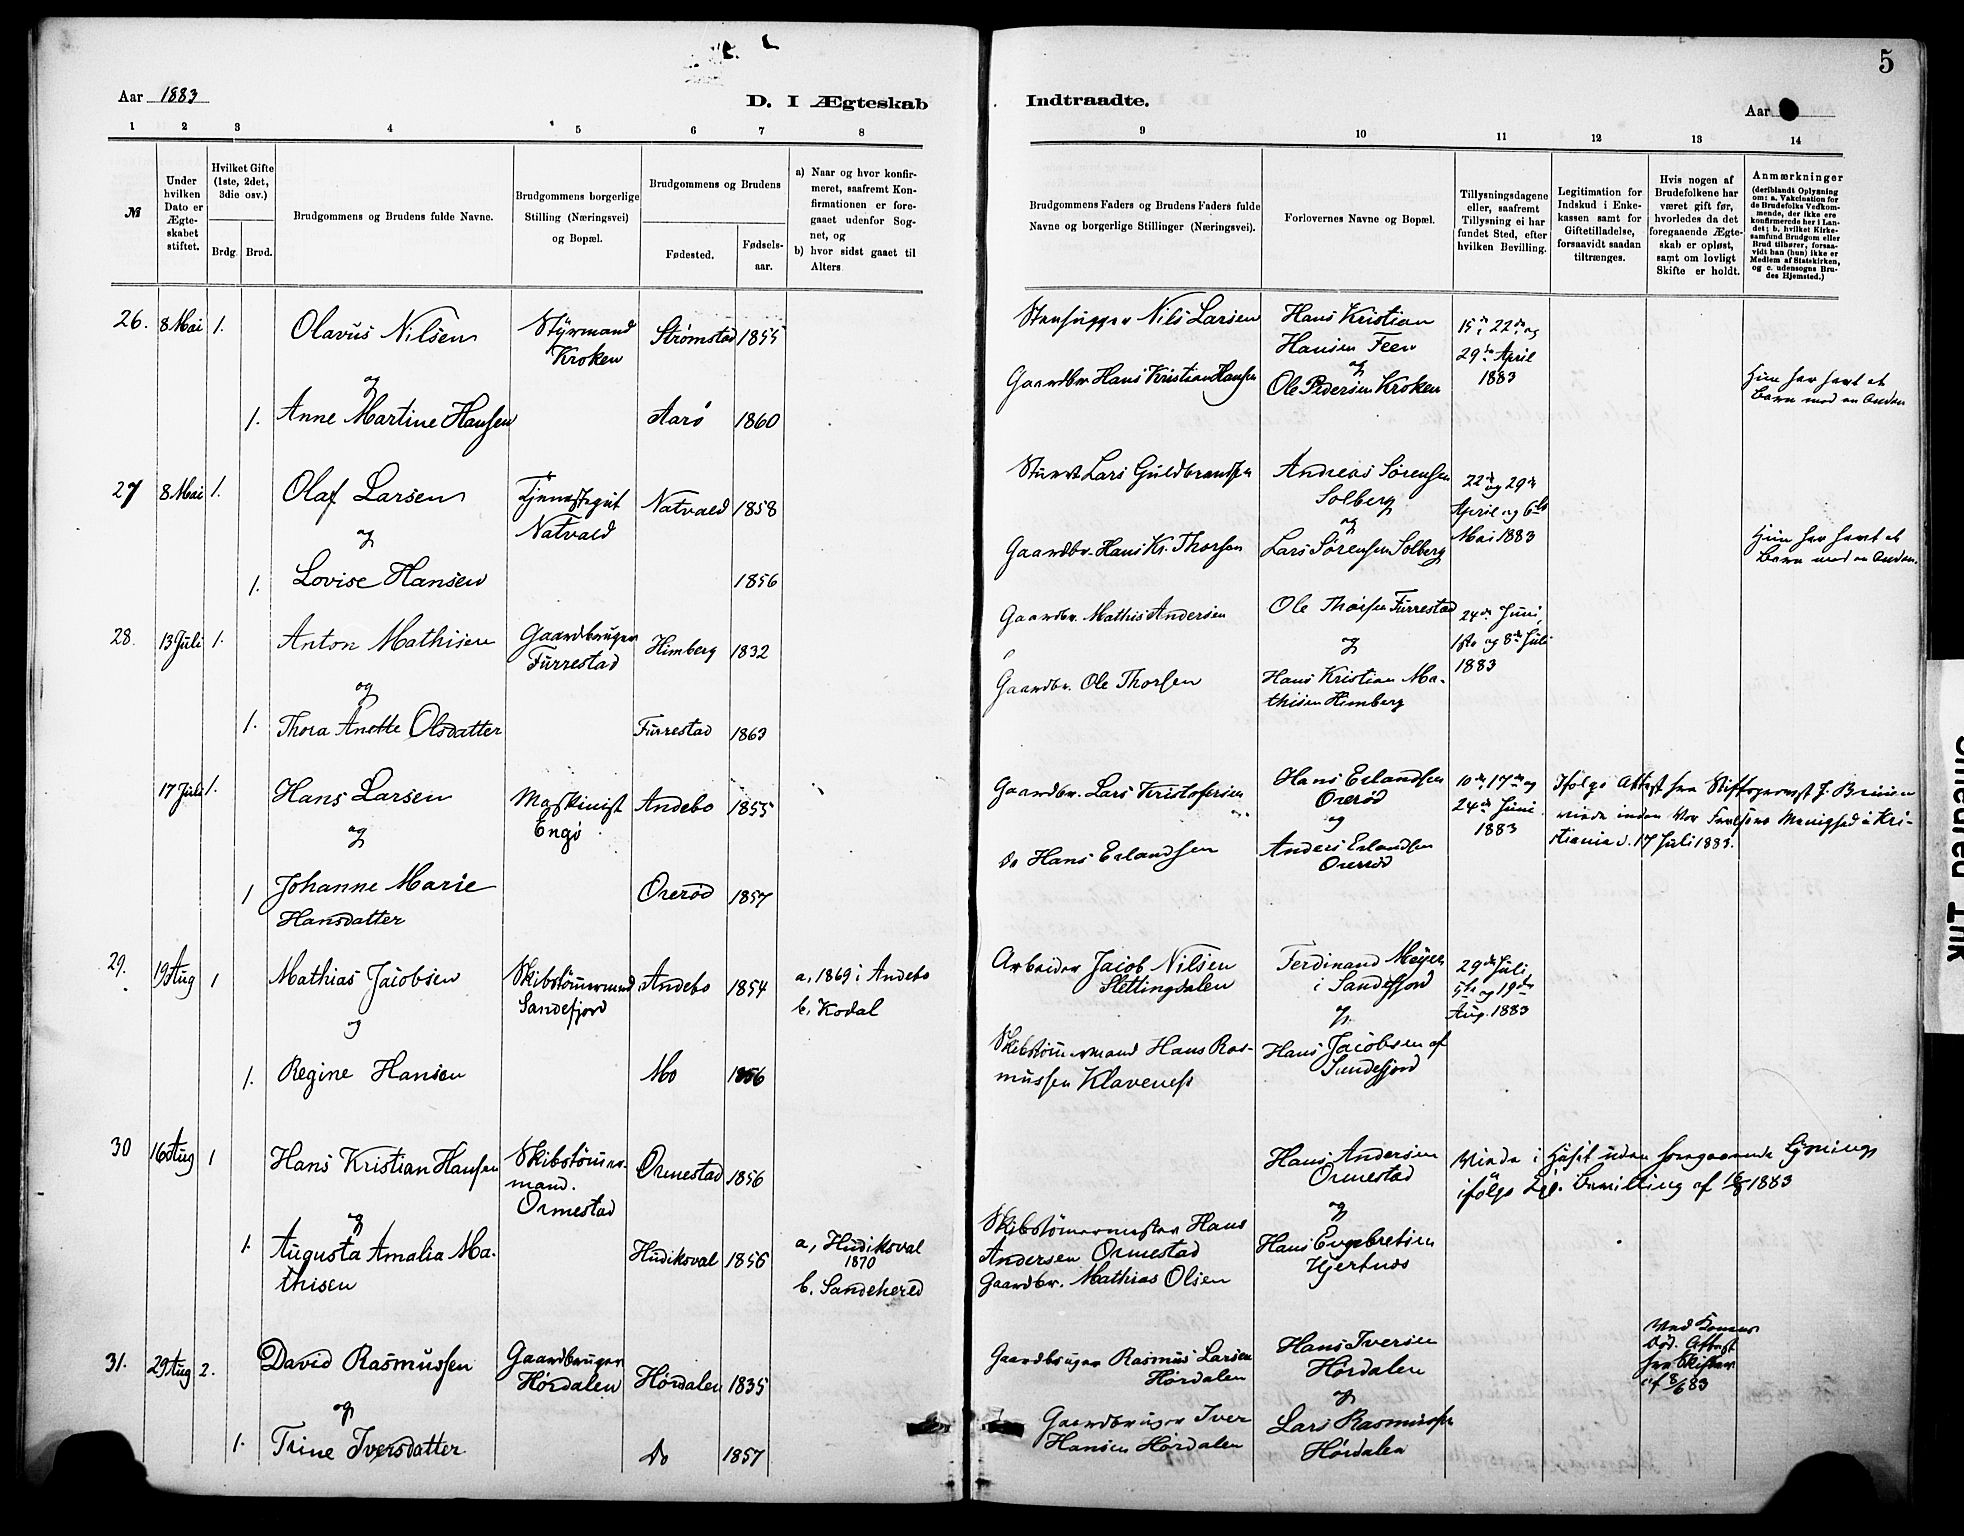 5
Aar 1883
D. I Ægteskab
Indtraadte.
Aar
1 2 3 4 5 6 7 8
9 10 11 12 13 14
№
Under hvilken Dato er Ægteskabet stiftet.
Hvilket Gifte (1ste, 2det, 3die osv.)
Brdg. Brud.
Brudgommens og Brudens fulde Navne.
Brudgommens borgerlige Stilling (Næringsvei) og Bopæl.
Brudgommens og Brudens
Fødested.
Fødselsaar.
a) Naar og hvor konfirmeret, saafremt Konfirmationen er foregaaet udenfor Sognet, og
b) hvor sidst gaaet til Alters
Brudgommens Faders og Brudens Faders fulde Navne og borgerlige Stillinger (Næringsvei).
Forlovernes Navne og Bopæl.
Tillysningsdagene eller, saafremt Tillysning ei har fundet Sted, efter hvilken Bevilling.
Legitimation for Indskud i Enkekassen samt for Giftetilladelse, forsaavidt saadan tiltrænges.
Hvis nogen af Brudefolkene har været gift før, hvorledes da det foregaaende Ægteskab er opløst, samt om lovligt Skifte er holdt.
Anmærkninger
(deriblandt Oplysning om: a. Vakcination for de Brudefolks Vedkommende, der ikke ere konfirmerede her i Landet; b. hvilket Kirkesamfund Brudgom eller Brud tilhører, forsaavidt han (hun) ikke er Medlem af Statskirken, og c. udensogns Brudes Hjemsted.)
26. 8 Mai 1. Olavus Nilsen
Styrmand
Kroken
Strømstad 1855
og
1. Anne Martine Hansen Aarø 1860
Stenhugger Nils Larsen
Gaardbr. Hans Kristian Hansen
Hans Kristian
Hansen Feen
og
Ole Pedersen Kroken
15de, 22de og
29de April
1883
Hun har havt et
Barn med en Anden
27 8 Mai 1. Olaf Larsen
Tjenestegut
Natvald
Natvald 1858
og
1. Lovise Hansen 1856
Lars Guldbrandsen
Gaardbr. Hans Kr. Thorsen
Andreas Sørensen
Solberg
og
Lars Sørensen Solberg
22de og 29de
April og 6te
Mai 1883
Hun har havt et
Barn med en Anden.
28. 13 Juli 1. Anton Mathisen
Gaardbruger
Furrestad
Himberg 1832
og
1. Thora Anette Olsdatter Furrestad 1863
Gaardbr. Mathis Andersen
Gaardbr. Ole Thorsen
Ole Thorsen Furrestad
og
Hans Kristian Ma-
thisen Himberg
24de Juni,
1ste og 8de Juli
1883
17 Juli 1. Hans Larsen
Maskinist
Engø
Andebo 1855
og
1 Johanne Marie
Hansdatter
Orerød 1857
Gaardbr. Lars Kristofersen
Do Hans Erlandsen
Hans Erlandsen
Orerød
og
Anders Erlandsen
Orerød
10de, 17de og
24de Juni
1883
Ifølge Attest fra Stiftsprovst J. Bruun
viede inden Vor Frelsers Menighed i Kri-
stiania d. 17 Juli 1883.
29. 19 Aug 1 Mathias Jacobsen
Skibstømmermand
Sandefjord
Andebo 1854
a, 1869 i Andebo
b. Kodal
og
1. Regine Hansen Mo 1856
Arbeider Jacob Nilsen
Slettingdalen
Skibstømmermand Hans Ras-
mussen Klaveness
Ferdinand Meyer
i Sandefjord
og
Hans Jacobsen af
Sandefjord
29de Juli,
5te og 19de
Aug. 1883
30 16 Aug 1 Hans Kristian Hansen
Skibstømmer-
mand.
Ormestad
Ormestad 1856
og
1. Augusta Amalia Ma-
thisen
Hudiksval 1856
a, Hudiksval
1870
b. Sandehered
Skibstømmermester Hans
Andersen Ormestad
Gaardbr. Mathias Olsen
Hans Andersen
Ormestad
og
Hans Engebretsen
Hjertnes
Viede i Huset uden foregaaende Lysning
ifølge Bevilling af 16/8 1883
31. 29 Aug 2. David Rasmussen
Gaardbruger
Hørdalen
Hørdalen 1835
og
1. Trine Iversdatter Do 1857
Gaardbruger Rasmus Larsen
Hørdalen
Gaardbruger Iver
Hansen Hørdalen
Hans Iversen
Hørdalen
og
Lars Rasmussen
Hørdalen
Ved Konens
Død. Attest
fra Skifter.
af 8/6 83